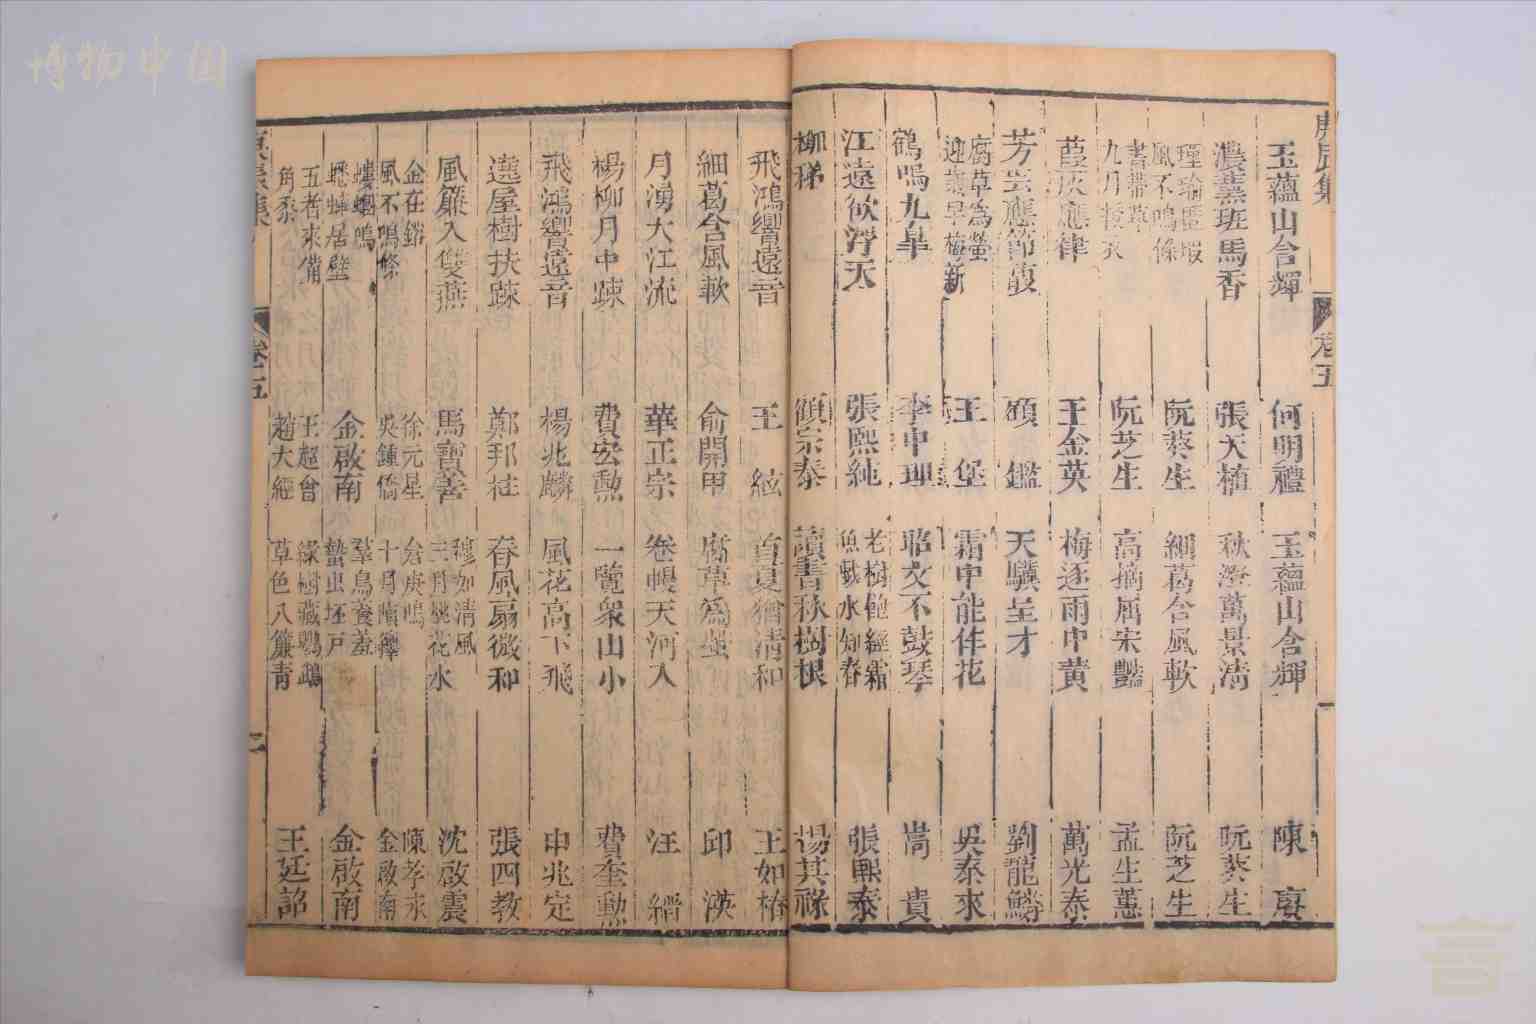 博物中国
卷五
玉蘊山含輝 何明禮 玉蘊山含輝 陳
濃薰班馬香 張天植 秋澄萬景清 阮葵生
瑾瑜匿瑕
風不鳴條 阮葵生 細葛含風軟 阮芝生
書帶草
九月授衣 阮芝生 高摘屈宋豔 孟生蕙
葭灰應律 王金英 梅逐雨中黃 萬光泰
芳 應節馥 顧鑑 天驥呈才 劉龍鱗
腐草為螢
迎歲早梅新 王堡 霜中能作花 吳泰來
鶴鳴九皐 李中理 昭文不鼓琴 貴
江遠欲浮天 張熙純 老樹飽經霜
魚戲水知春 張熙泰
柳稊 顧宗泰 讀書秋樹根 楊其祿
飛鴻響遠音 王絃 首夏猶清和 王如椿
細葛含風軟 俞開甲 腐草為螢 邱漢
月湧大江流 華正宗 卷幔天河入 汪縉
楊柳月中疎 費宏勲 一覽衆山小 費奎勲
飛鴻響遠音 楊兆麟 風花高下飛 申兆定
遶屋樹扶疎 鄭邦柱 春風扇微和 張四教
風簾入雙燕 馬寶善 穆如清風
三月桃花水 沈啟震
金在鎔 徐元星 倉庚鳴 陳孝永
風不鳴條 吳鍾僑 十月隕蘀 金啟南
螻蟈鳴
蟋蟀居壁 金啟南 羣鳥養羞
蟄虫坯戸 金啟南
五者來備 王超曾 綠樹藏鸚鵡
角黍 趙大經 草色入簾青 王廷詔
卷五